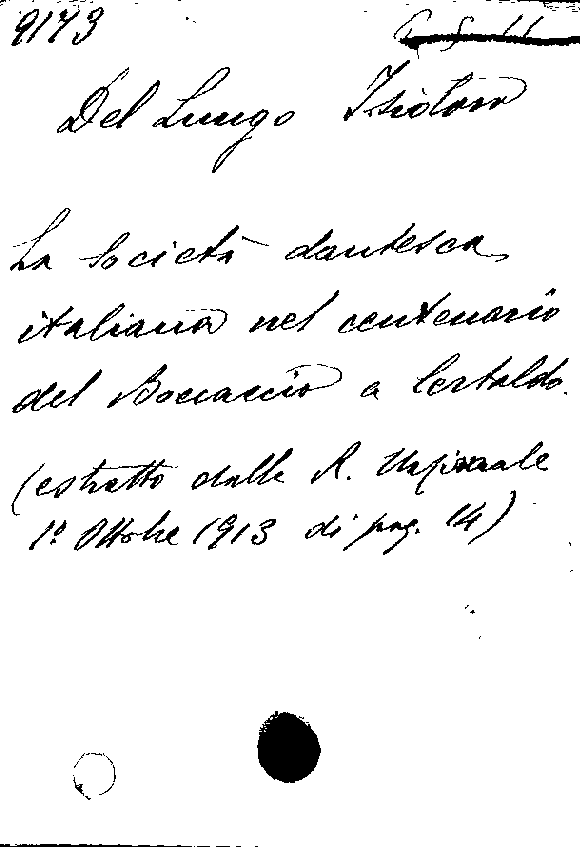 9173
Del Lungo Isidoro
La Società dantesca
italiana nel centenario
del Boccaccio a Certaldo.
(estratto dalla R. Nazionale
1º Ottobre 1913 di pag. 14)